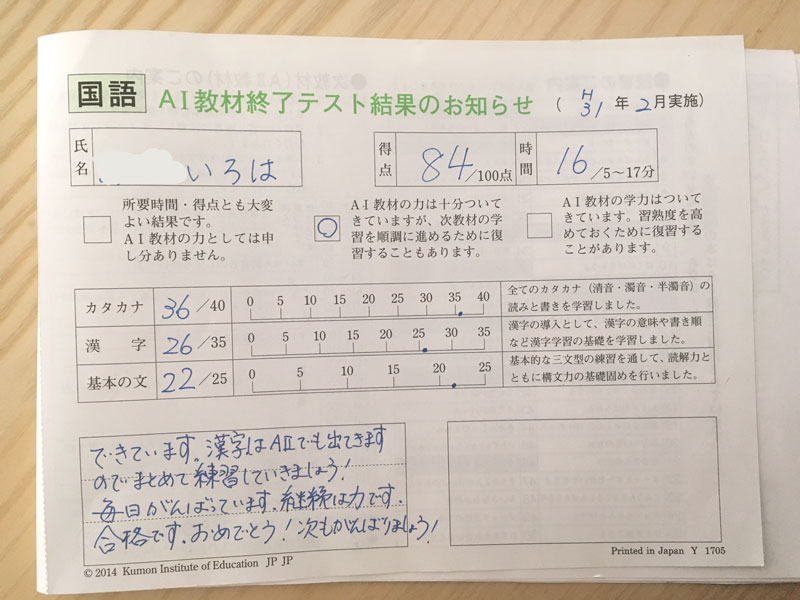 国語 AI教材終了テスト結果のお知らせ ( H31年2月実施)
氏名 いろは 得点 84/100点 時間 16/5〜17分
所要時間・得点とも大変
よい結果です。
AI教材の力としては申
し分ありません。
○
AI教材の力は十分ついて
きていますが、次教材の学
習を順調に進めるために復
習することもあります。
AI教材の学力はついて
きています。習熟度を高
めておくために復習する
ことがあります。
カタカナ 36/40 0 5 10 15 20 25 30 35 40
全てのカタカナ(清音・濁音・半濁音)の
読みと書きを学習しました。
漢字 26/35 0 5 10 15 20 25 30 35
漢字の導入として、漢字の意味や書き順
など漢字学習の基礎を学習しました。
基本の文 22/25 0 5 10 15 20 25
基本的な三文型の練習を通して、読解力と
ともに構文力の基礎固めを行いました。
できています。漢字はAⅡでも出てきます
のでまとめて練習していきましょう!
毎日がんばっています。継続は力です。
合格です。おめでとう!次もがんばりましょう!
© 2014 Kumon Institute of Education JP JP
Printed in Japan Y 1705